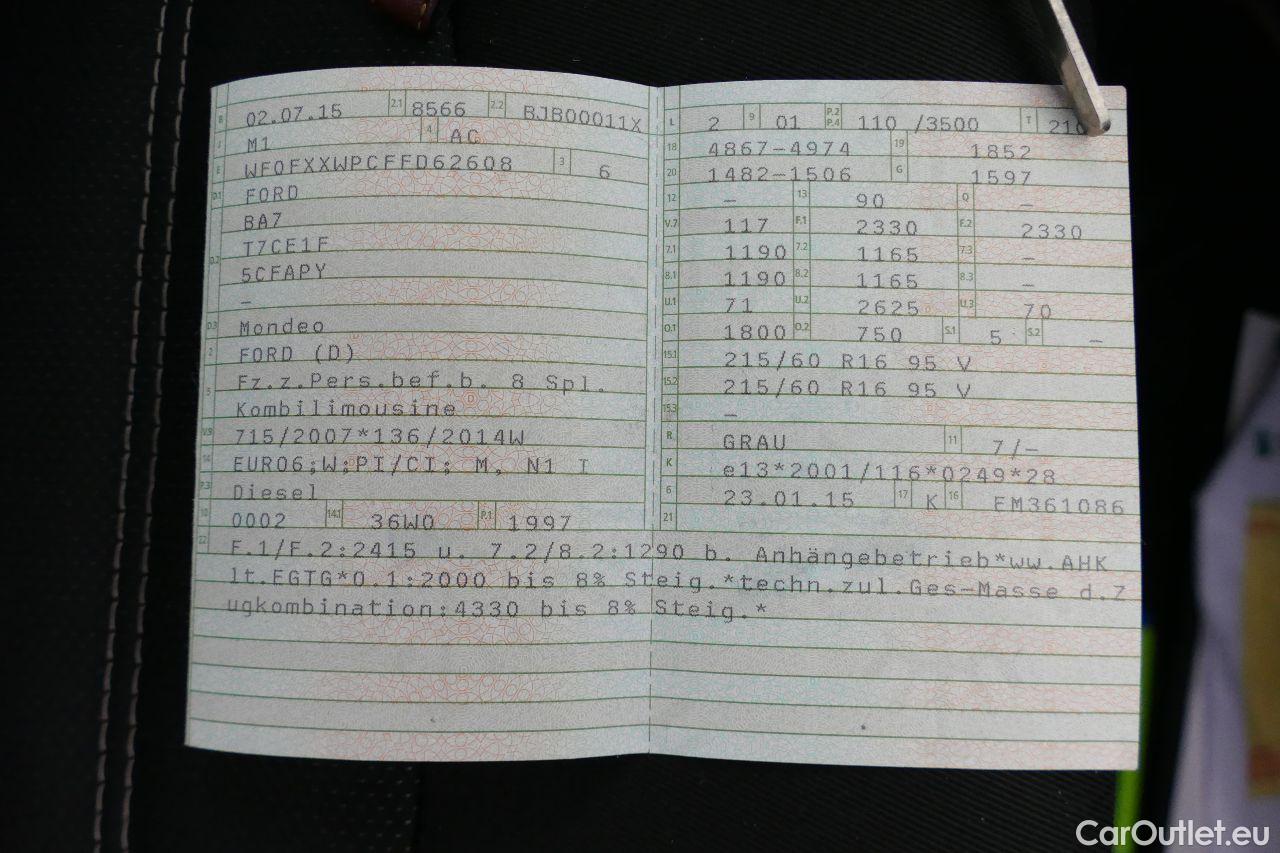 B 02.07.15 2.1 8566 2.2 BJB00011X
J M1 4 AC
E WF0FXXWPCFFD62608 3 6
D.1 FORD
BA7
D.2 T7CE1F
5CFAPY
–
D.3 Mondeo
2 FORD (D)
5 Fz.z.Pers.bef.b. 8 Spl.
Kombilimousine
V.9 715/2007*136/2014W
14 EURO6;W;PI/CI; M, N1 I
P.3 Diesel
10 0002 14.1 36W0 P.1 1997
L 2 9 01 P.2 P.4 110 /3500 T 210
18 4867–4974 19 1852
20 1482–1506 G 1597
12 – 13 90 Q –
V.7 117 F.1 2330 F.2 2330
7.1 1190 7.2 1165 7.3 –
8.1 1190 8.2 1165 8.3 –
U.1 71 U.2 2625 U.3 70
O.1 1800 O.2 750 S.1 5 S.2 –
15.1 215/60 R16 95 V
15.2 215/60 R16 95 V
15.3 –
R GRAU 11 7/–
K e13*2001/116*0249*28
6 23.01.15 17 K 16 FM361086
21
22 F.1/F.2:2415 u. 7.2/8.2:1290 b. Anhängebetrieb*ww.AHK
lt.EGTG*O.1:2000 bis 8% Steig.*techn.zul.Ges–Masse d.Z
ugkombination:4330 bis 8% Steig.*
CarOutlet.eu